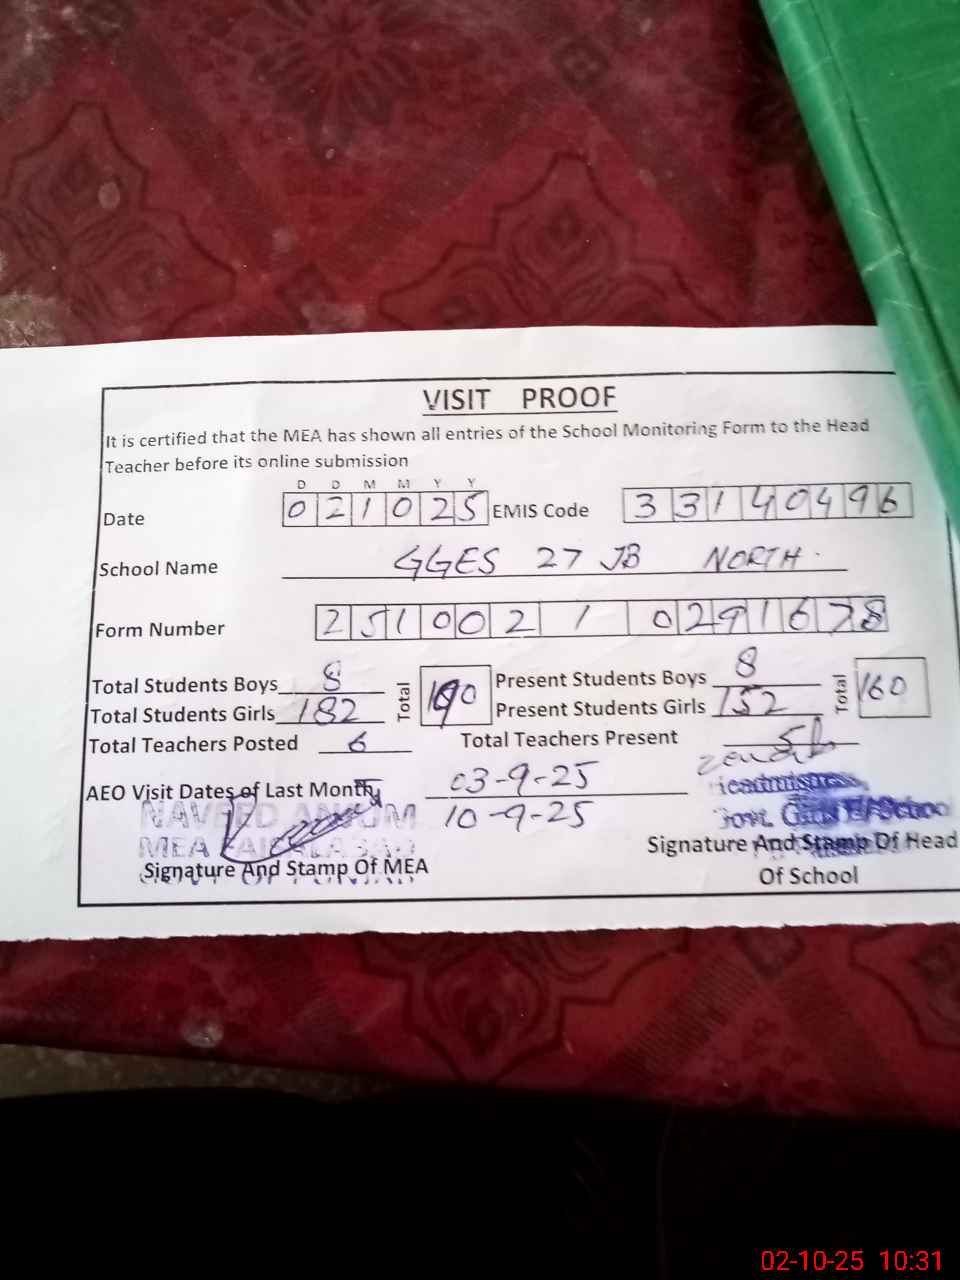 VISIT PROOF
It is certified that the MEA has shown all entries of the School Monitoring Form to the Head
Teacher before its online submission
D D M M Y Y
Date 0 2 1 0 2 5 EMIS Code 3 3 1 4 0 4 9 6
School Name GGES 27 JB NORTH
Form Number 2 5 1 0 0 2 1 0 2 9 1 6 7 8
Total Students Boys 8 Total 190 Present Students Boys 8 Total 160
Total Students Girls 182 Present Students Girls 152
Total Teachers Posted 6 Total Teachers Present 5
AEO Visit Dates of Last Month 03-9-25
10-9-25
NAVEED ANJUM
MEA FAISALABAD
Headmistress
Govt. Girls E/School
Signature And Stamp Of MEA
Signature And Stamp Of Head
Of School
02-10-25 10:31